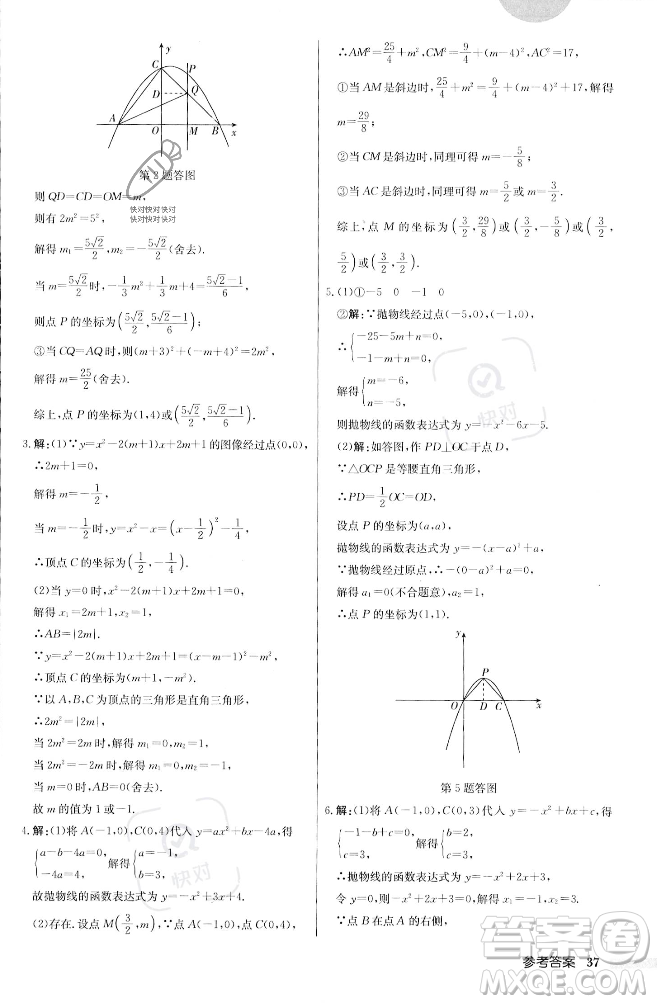 y
C
P
D
Q
A
O
M
B
x
第2题答图
快对快对快对
快对快对快对
则 QD=CD=OM=m,
则有 2m²=5²,
解得 m₁=5√2/2,m₂=-5√2/2(舍去).
当 m=5√2/2 时,-1/3m²+1/3m+4=(5√2-1)/6,
则点 P 的坐标为(5√2/2,(5√2-1)/6).
③当 CQ=AQ 时,则(m+3)²+(-m+4)²=2m²,
解得 m=25/2(舍去).
综上,点 P 的坐标为(1,4)或(5√2/2,(5√2-1)/6).
3.解:(1)∵y=x²-2(m+1)x+2m+1 的图像经过点(0,0),
∴2m+1=0,
解得 m=-1/2,
当 m=-1/2 时,y=x²-x=(x-1/2)²-1/4,
∴顶点 C 的坐标为(1/2,-1/4).
(2)当 y=0 时,x²-2(m+1)x+2m+1=0,
解得 x₁=2m+1,x₂=1.
∴AB=|2m|.
∵y=x²-2(m+1)x+2m+1=(x-m-1)²-m²,
∴顶点 C 的坐标为(m+1,-m²).
∵以 A、B、C 为顶点的三角形是直角三角形,
∴2m²=|2m|,
当 2m²=-2m 时,解得 m₁=0,m₂=-1.
当 2m²=2m 时,解得 m₁=0,m₂=1.
当 m=0 时,AB=0(舍去).
故 m 的值为 1 或-1.
4.解:(1)将 A(-1,0),C(0,4)代入 y=ax²+bx-4a,得
{a-b-4a=0, -4a=4, 解得{a=-1, b=3,
故抛物线的函数表达式为 y=-x²+3x+4.
(2)存在.设点 M(3/2,m),
∴AM²=25/4+m²,CM²=9/4+(m-4)²,AC²=17,
①当 AM 是斜边时,25/4+m²=9/4+(m-4)²+17,解得
m=29/8;
②当 CM 是斜边时,同理可得 m=-5/8;
③当 AC 是斜边时,同理可得 m=5/2或3/2.
综上,点 M 的坐标为(3/2,29/8)或(3/2,-5/8)或(3/2,
5/2)或(3/2,3/2).
5.(1)①-5 0 -1 0
②解:∵抛物线经过点(-5,0),(-1,0),
∴{-25-5m+n=0, -1-m+n=0,
解得{m=-6, n=-5,
则抛物线的函数表达式为 y=-x²-6x-5.
(2)解:如答图,作 PD⊥OC 于点 D,
∵△OCP 是等腰直角三角形,
∴PD=1/2OC=OD,
设点 P 的坐标为(a,a),
抛物线的函数表达式为 y=-(x-a)²+a,
∵抛物线经过原点,∴-(0-a)²+a=0,
解得 a₁=0(不合题意),a₂=1,
∴点 P 的坐标为(1,1).
y
P
O
D
C
x
第5题答图
6.解:(1)将 A(-1,0),C(0,3)代入 y=-x²+bx+c,得
{-1-b+c=0, c=3, 解得{b=2, c=3,
∴抛物线的函数表达式为 y=-x²+2x+3,
令 y=0,-x²+2x+3=0,解得 x₁=-1,x₂=3.
∵点 B 在点 A 的右侧,
快对
快对
答案圈
MXQE.COM
参考答案 37